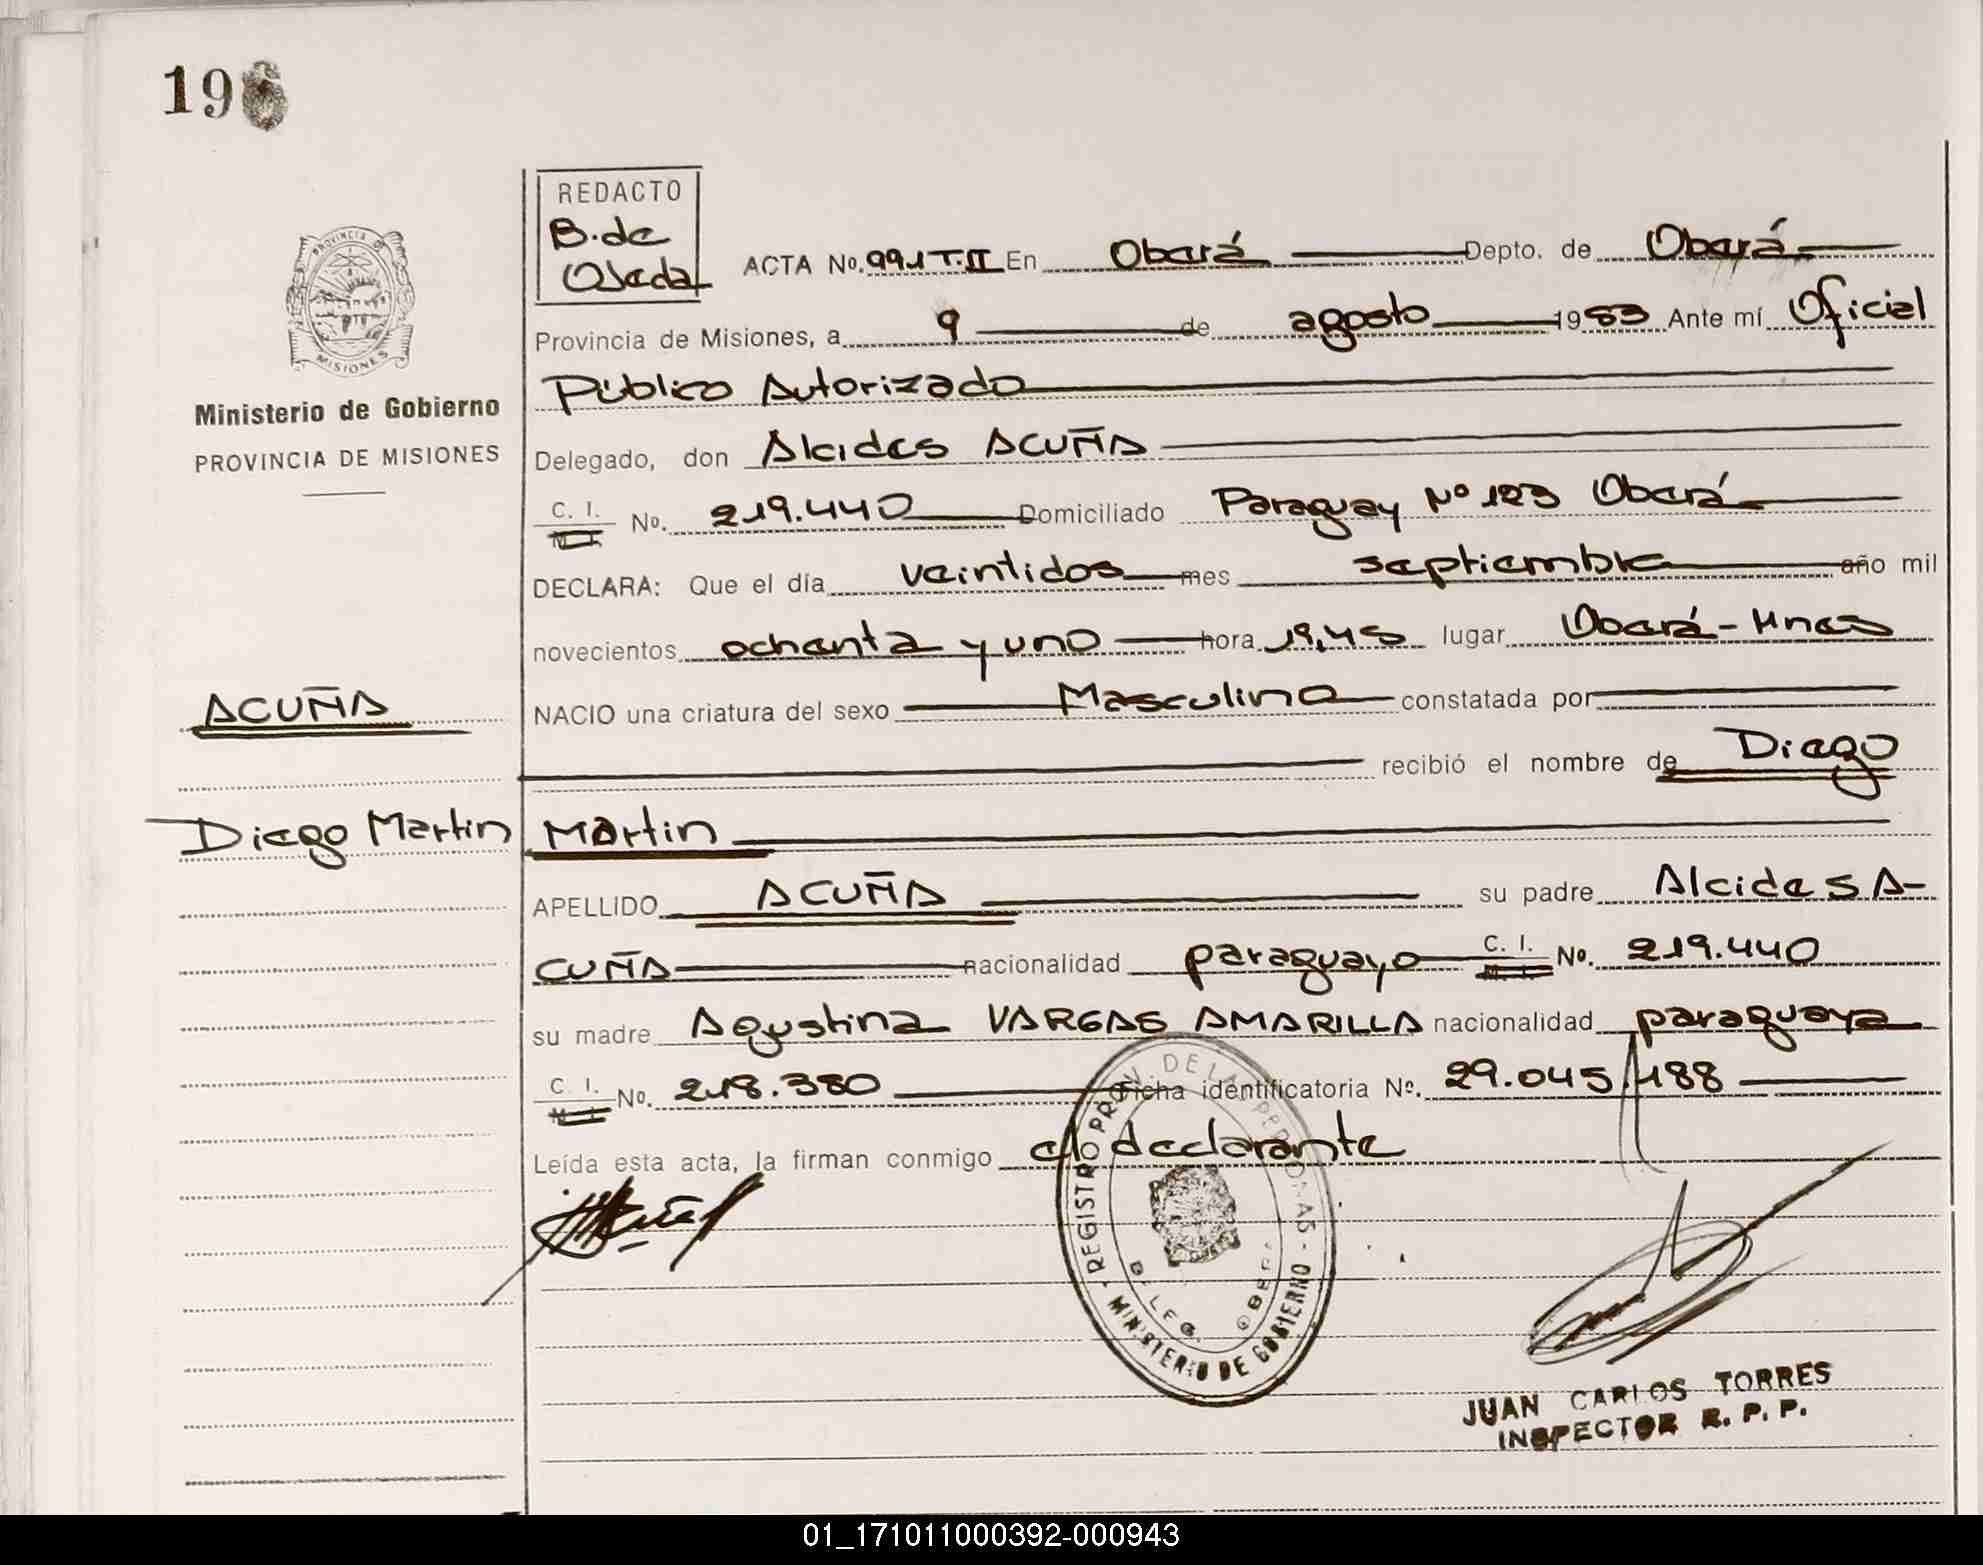 196
REDACTO
B. de
Ojeda
ACTA No. 991 T.II En Oberá Depto. de Oberá
Provincia de Misiones, a 9 de agosto 1983 Ante mí Oficial
Público Autorizado
Delegado, don Alcides ACUÑA
C. I.
M. I. No. 219.440 Domiciliado Paraguay Nº 123 Oberá
DECLARA: Que el día veintidos mes septiembre año mil
novecientos ochenta y uno hora 19,45 lugar Oberá - Mnes
NACIO una criatura del sexo Masculino constatada por
recibió el nombre de Diego
Martin
APELLIDO ACUÑA su padre Alcides A-
CUÑA nacionalidad paraguayo C. I. No. 219.440
su madre Agustina VARGAS AMARILLA nacionalidad paraguaya
C. I. No. 218.380 Ficha identificatoria No. 29.045/188
Leída esta acta, la firman conmigo el declarante
PROVINCIA DE
MISIONES
Ministerio de Gobierno
PROVINCIA DE MISIONES
ACUÑA
Diego Martin
REGISTRO PROV. DE LAS PERSONAS - MINISTERIO DE GOBIERNO
DELEG. OBERA
JUAN CARLOS TORRES
INSPECTOR R. P. P.
01_171011000392-000943